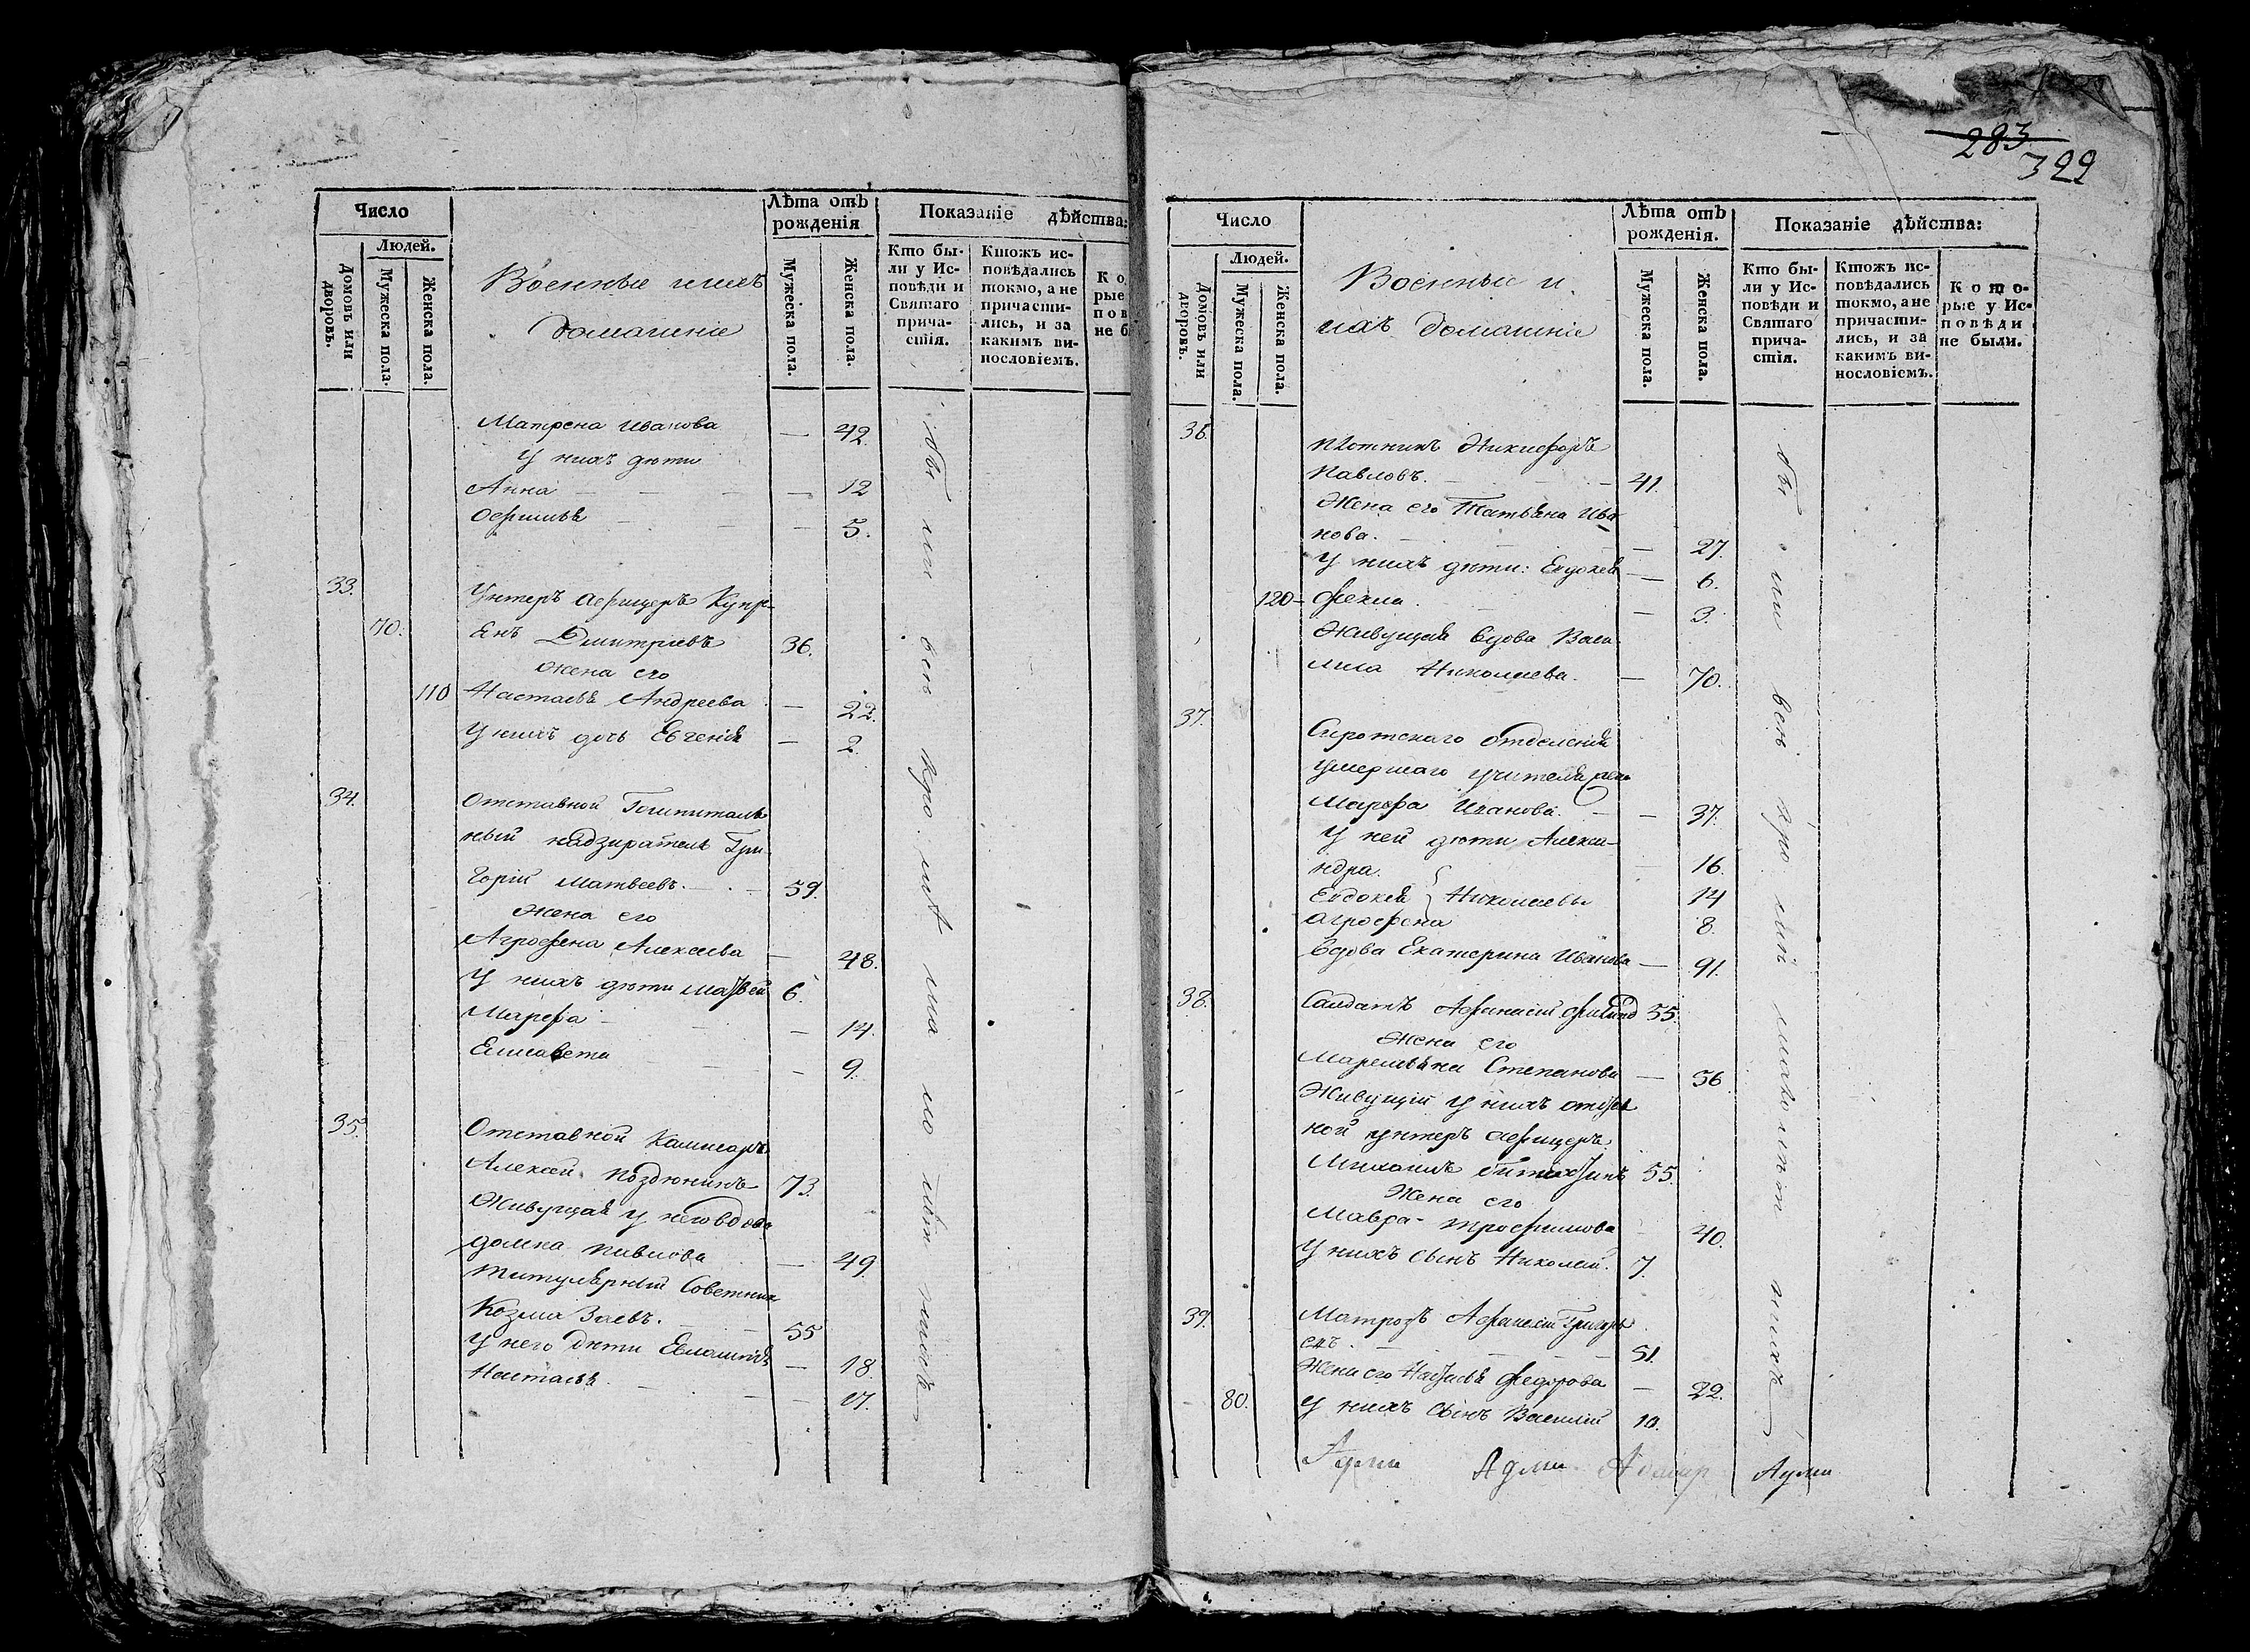 Число
Людей.
Домовъ или дворовъ.
Мужеска пола.
Женска пола.
Военные и ихъ
домашніе
Лѣта отъ рожденія
Мужеска пола.
Женска пола.
Показаніе дѣйства:
Кто были у Исповѣди и Святаго причастія.
Ктожъ исповѣдались токмо, а не причастились, и за какимъ винословіемъ.
Матрена Иванова — 42.
У нихъ дѣти
Анна — 12
5.
33. Унтеръ Афицеръ Купр-
70. Янъ Дмитріевъ 36.
жена его
110 Настасья Андреева — 22.
У нихъ дочь Евгенія — 2.
34. Отставной Гошпиталь
ный надзиратель Гри
горій Матвеевъ. 59.
жена его
Агрофена Алексеева — 48.
У нихъ дѣти Матвей 6.
Марфа — 14.
Елисавета — 9.
35. Отставной Камисаръ
Алексей Поздюнинъ 73.
Живущая у него вдова
домна Павлова — 49.
Титулярный Советник
Козма Заевъ. 55
У него дѣти Евлампія — 18.
Настасья — 17.
283
322
Число
Людей.
Домовъ или дворовъ.
Мужеска пола.
Женска пола.
Военные и
ихъ домашніе
Лѣта отъ рожденія.
Мужеска пола.
Женска пола.
Показаніе дѣйства:
Кто были у Исповѣди и Святаго причастія.
Ктожъ исповѣдались токмо, а не причастились, и за какимъ винословіемъ.
Которые у Исповѣди не были.
36. Плотникъ Никифоръ
Павловъ. 41.
Жена его Татьяна Ива
нова. — 27.
У нихъ дѣти: Евдокея — 6.
120 Фекла — 3.
Живущая вдова Васи
лиса Николаева. — 70.
37. Сиротскаго Отделенія
умершаго учителя жена
Марфа Иванова. — 37.
У ней дѣти Алекса-
ндра. — 16.
Евдокея } Николаевы 14
Агрофена 8.
Вдова Екатерина Иванова — 91.
38. Салдатъ Афанасій 55.
Жена его
Маремьяна Степанова — 56
Живущій у нихъ отстав
ной унтеръ афицеръ
Михаилъ 55.
Жена его
Мавра Трофимова 40.
У нихъ сынъ Николай. 7.
39. Матрозъ Афанасій Григорь
евъ. 51.
Жена его Наталья Федорова — 22.
80. У нихъ сынъ Василій 10.
Адми Адми Адмир Адми